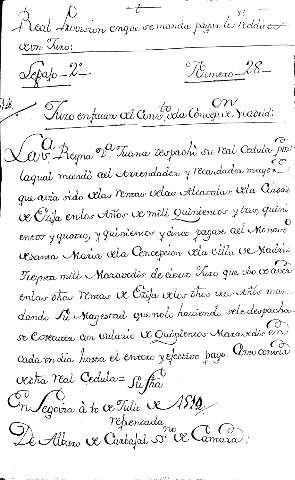 Real Provision enque se manda pagar los reditos
de un Juro:
Legajo 2º Numero 28
Juro enfavor del Convto dela Concepcn de Madrid:
La Sª Reyna Dª Juana despachó su Real Cedula por
laqual mandó al Arrendador y recaudador mayor
que avia sido delas rentas delas Alcavalas dela Ciudad
de Ezija enlos Años de mill Quinientos y tres, quini
entos y quatro, y quinientos y cinco pagase al Monaso
de santa Maria dela Concepcion dela Villa de Madrid
Treynta mill Maravedis de cierto Juro que
enlas dhas rentas de Ezija delos dhos tres Años man
dando Su Magestad que nolo haciendo sele despacha
se Executor con salario de Quinientos Maravedis en
cada un dia hasta el entero y efectivo pago Como consta
desta real Cedula= Su fha
En Segovia à de Julio de
refrendada
De Alfaro de Carbajal Sno de Camara: